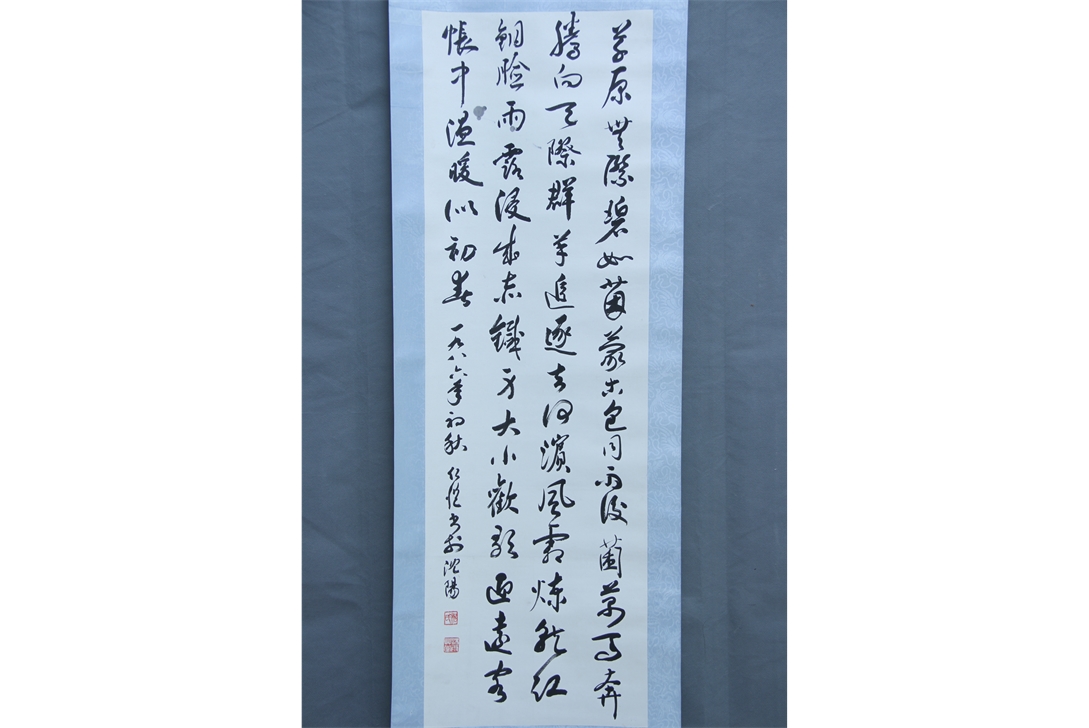 草原無際碧如茵蒙古包同雨後菌萬馬奔
騰向天際群羊追逐去河濱風霜煉就紅
銅臉雨露浸成赤鐵身大小歡歌迎遠客
帳中温暖似初春 一九八六年初秋 仁愷书於沈陽